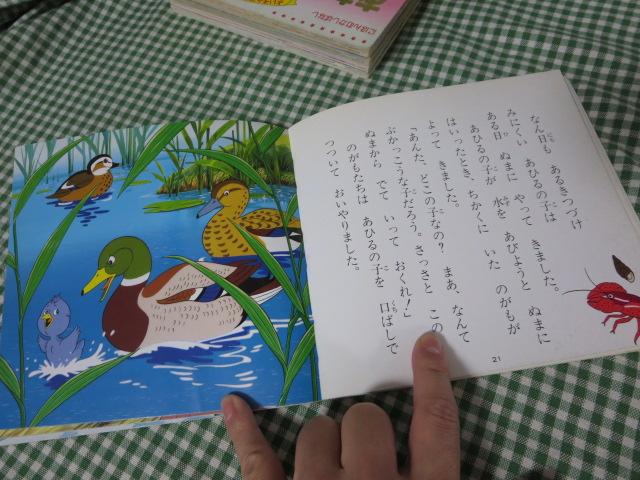 なん日も あるきつづけ
みにくい あひるの子は
ある日 ぬまに やって きました。
あひるの子が 水を あびようと ぬまに
はいったとき、ちかくに いた のがもが
よって きました。
「あんた、どこの子なの? まあ、なんて
ぶかっこうな子だろう。さっさと この
ぬまから でて いって おくれ!」
のがもたちは あひるの子を 口ばしで
つついて おいやりました。
21